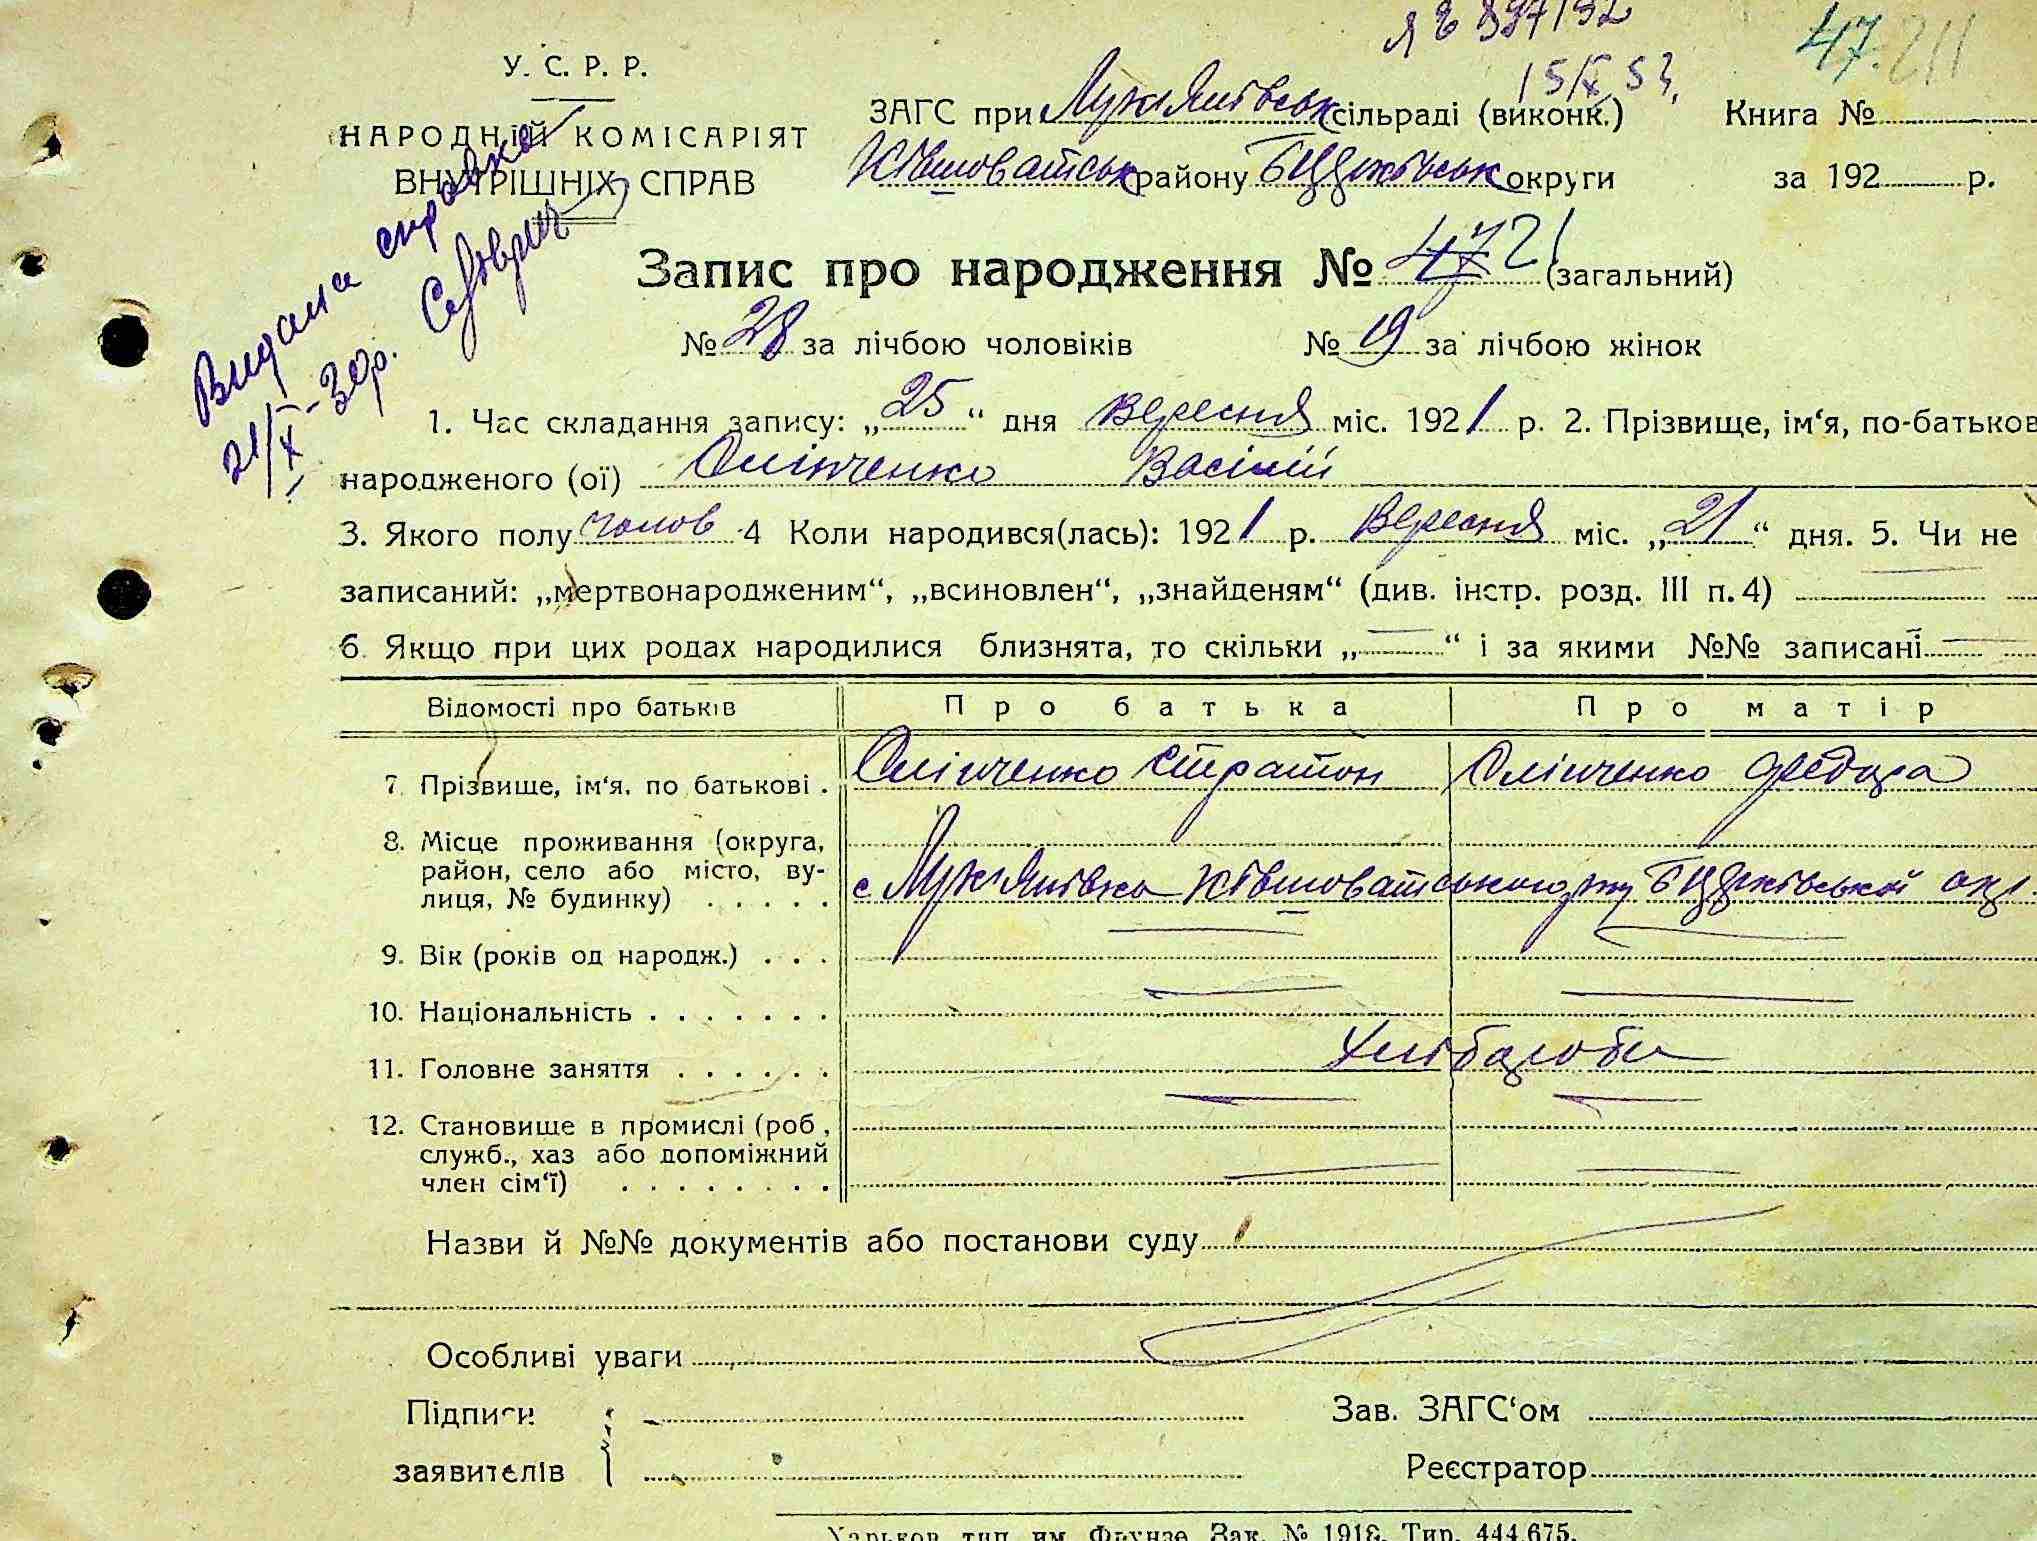 47. 211
15/X 53.
У. С. Р. Р.
НАРОДНІЙ КОМІСАРІЯТ
ВНУТРІШНІХ СПРАВ
ЗАГС при Лукʼянівськ сільраді (виконк.) Книга №
Ківшоватськ району БЦерківськ округи за 192 р.
Видана справка
21/X-30р.
Запис про народження № 47 21 (загальний)
№ 28 за лічбою чоловіків № 19 за лічбою жінок
1. Час складання запису: „25“ дня вересня міс. 1921 р. 2. Прізвище, ім‘я, по-батьков
народженого (ої) Олінченко Василій
3. Якого полу чолов 4 Коли народився(лась): 1921 р. вересня міс. „21“ дня. 5. Чи не
записаний: „мертвонародженим“, „всиновлен“, „знайденям“ (див. інстр. розд. III п. 4)
6. Якщо при цих родах народилися близнята, то скільки „—“ і за якими №№ записані —
Відомості про батьків Про батька Про матір
7. Прізвище, ім‘я, по батькові . Олінченко Стратон Олінченко Федора
8. Місце проживання (округа,
район, село або місто, ву-
лиця, № будинку) . . . . . с Лукʼянівка Ківшоватського р-ну БЦерківської окр.
9. Вік (років од народж.) . . .
10. Національність . . . . . . .
11. Головне заняття . . . . . . Хлібороби
12. Становище в промислі (роб.,
служб., хаз або допоміжний
член сім‘ї) . . . . . . . .
Назви й №№ документів або постанови суду
Особливі уваги
Підписи Зав. ЗАГС‘ом
заявителів Реєстратор
Харьков, тип. им. Фрунзе. Зак. № 1918. Тир. 444.675.